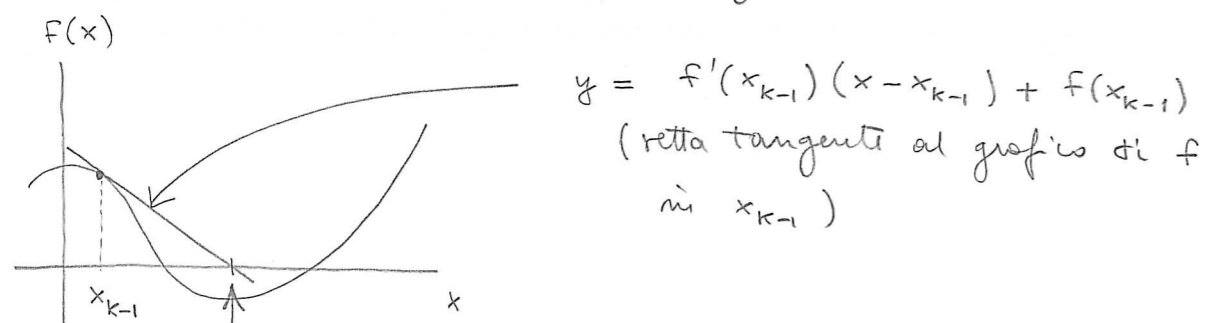 F(x)
y = f'(x_{k-1}) (x - x_{k-1}) + f(x_{k-1})
(retta tangenti al grafico di f
in x_{k-1})
x_{k-1}
x